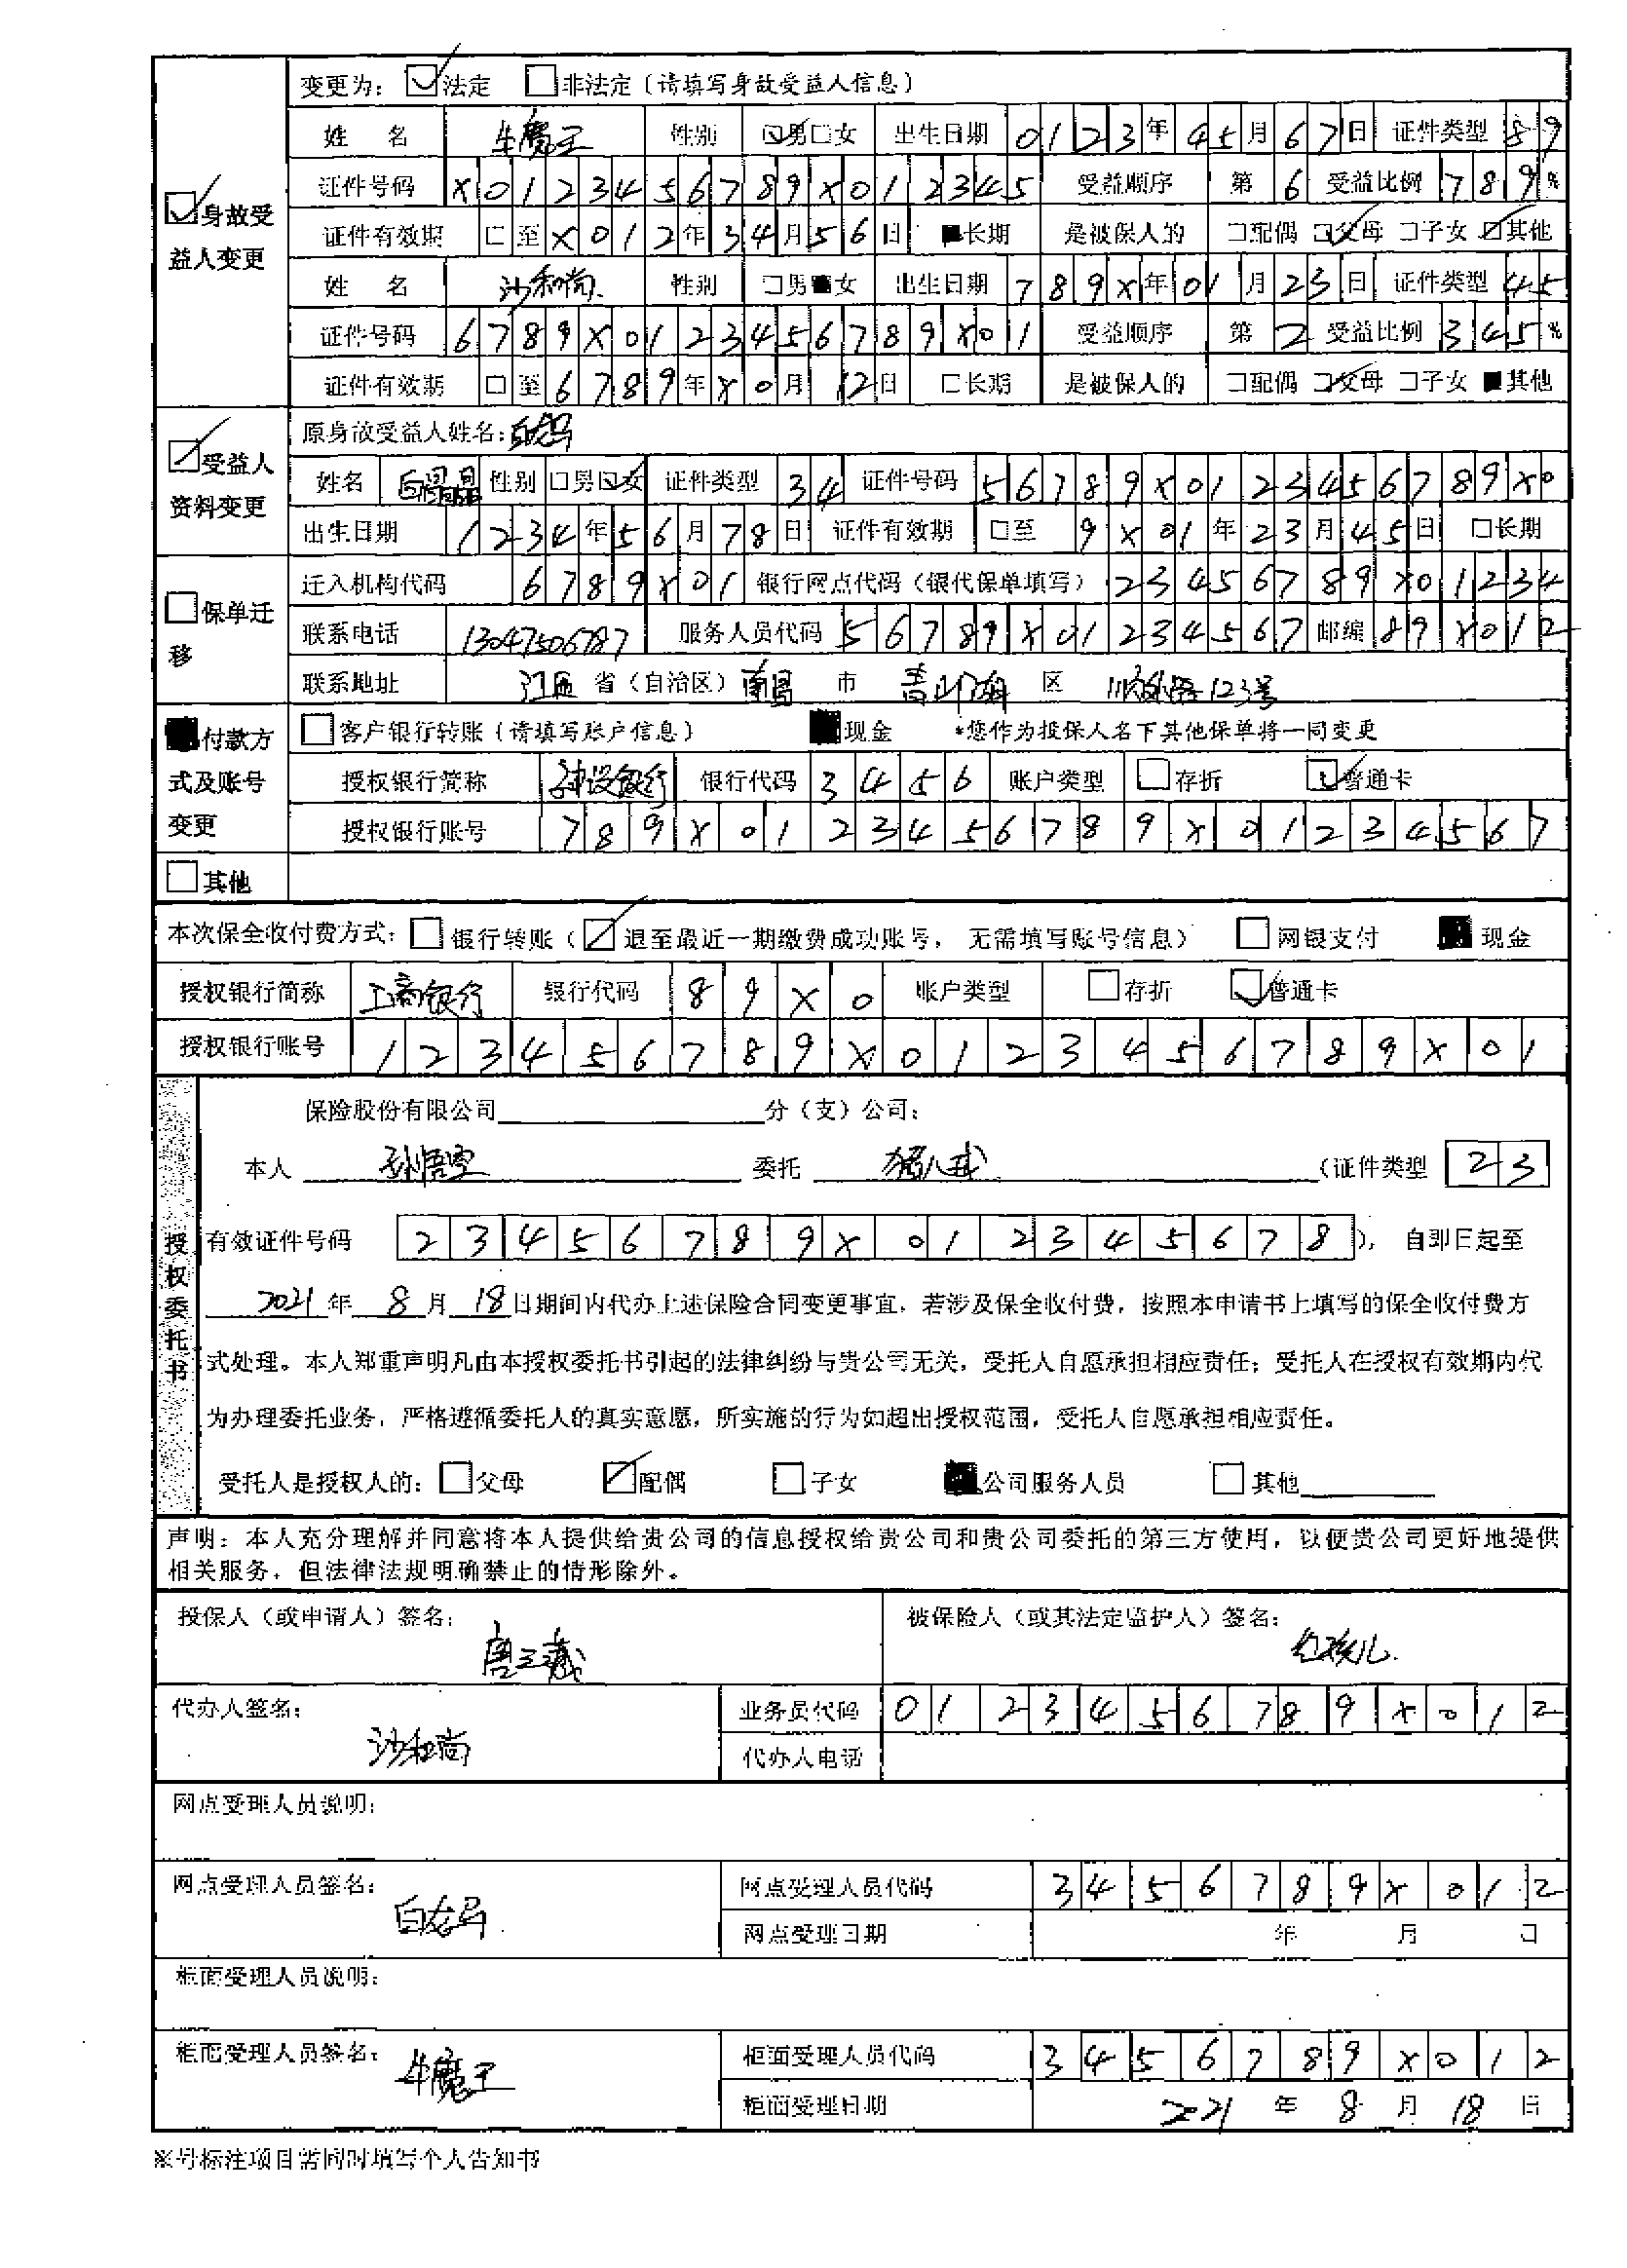 变更为： ☑法定 □非法定（请填写身故受益人信息）
☑身故受益人变更
姓 名 牛魔王 性别 ☑男□女 出生日期 0123年45月67日 证件类型 89
证件号码 X0123456789X012345 受益顺序 第6 受益比例 789%
证件有效期 □至X012年34月56日 ■长期 是被保人的 □配偶 ☑父母 □子女 ☑其他
姓 名 沙和尚 性别 □男■女 出生日期 789X年01月23日 证件类型 45
证件号码 6789X0123456789X01 受益顺序 第2 受益比例 345%
证件有效期 □至6789年X0月12日 □长期 是被保人的 □配偶 ☑父母 □子女 ■其他
☑受益人资料变更
原身故受益人姓名：白龙马
姓名 白晶晶 性别 □男☑女 证件类型 34 证件号码 56789X0123456789X0
出生日期 1234年56月78日 证件有效期 □至 9X01年23月45日 □长期
□保单迁移
迁入机构代码 6789X01 银行网点代码（银代保单填写） 23456789X01234
联系电话 13047506787 服务人员代码 56789X01234567 邮编 89X012
联系地址 江西 省（自治区） 南昌 市 青山湖 区 顺外路123号
■付款方式及账号变更
□客户银行转账（请填写账户信息） ■现金 *您作为投保人名下其他保单将一同变更
授权银行简称 建设银行 银行代码 3456 账户类型 □存折 ☑普通卡
授权银行账号 789X0123456789X01234567
□其他
本次保全收付费方式： □银行转账（☑退至最近一期缴费成功账号， 无需填写账号信息） □网银支付 ■现金
授权银行简称 工商银行 银行代码 89X0 账户类型 □存折 ☑普通卡
授权银行账号 123456789X0123456789X01
授权委托书
保险股份有限公司 分（支）公司：
本人 孙悟空 委托 猪八戒 （证件类型 23
有效证件号码 23456789X012345678）， 自即日起至
2021年 8月 18日期间内代办上述保险合同变更事宜，若涉及保全收付费，按照本申请书上填写的保全收付费方
式处理。本人郑重声明凡由本授权委托书引起的法律纠纷与贵公司无关，受托人自愿承担相应责任；受托人在授权有效期内代
为办理委托业务，严格遵循委托人的真实意愿，所实施的行为如超出授权范围，受托人自愿承担相应责任。
受托人是授权人的： □父母 ☑配偶 □子女 ■公司服务人员 □其他
声明：本人充分理解并同意将本人提供给贵公司的信息授权给贵公司和贵公司委托的第三方使用，以便贵公司更好地提供
相关服务，但法律法规明确禁止的情形除外。
投保人（或申请人）签名： 唐三藏 被保险人（或其法定监护人）签名： 红孩儿
代办人签名： 沙和尚 业务员代码 0123456789X012
代办人电话
网点受理人员说明：
网点受理人员签名： 白龙马 网点受理人员代码 3456789X012
网点受理日期 年 月 日
柜面受理人员说明：
柜面受理人员签名： 牛魔王 柜面受理人员代码 3456789X012
柜面受理日期 2021 年 8 月 18 日
※号标注项目需同时填写个人告知书